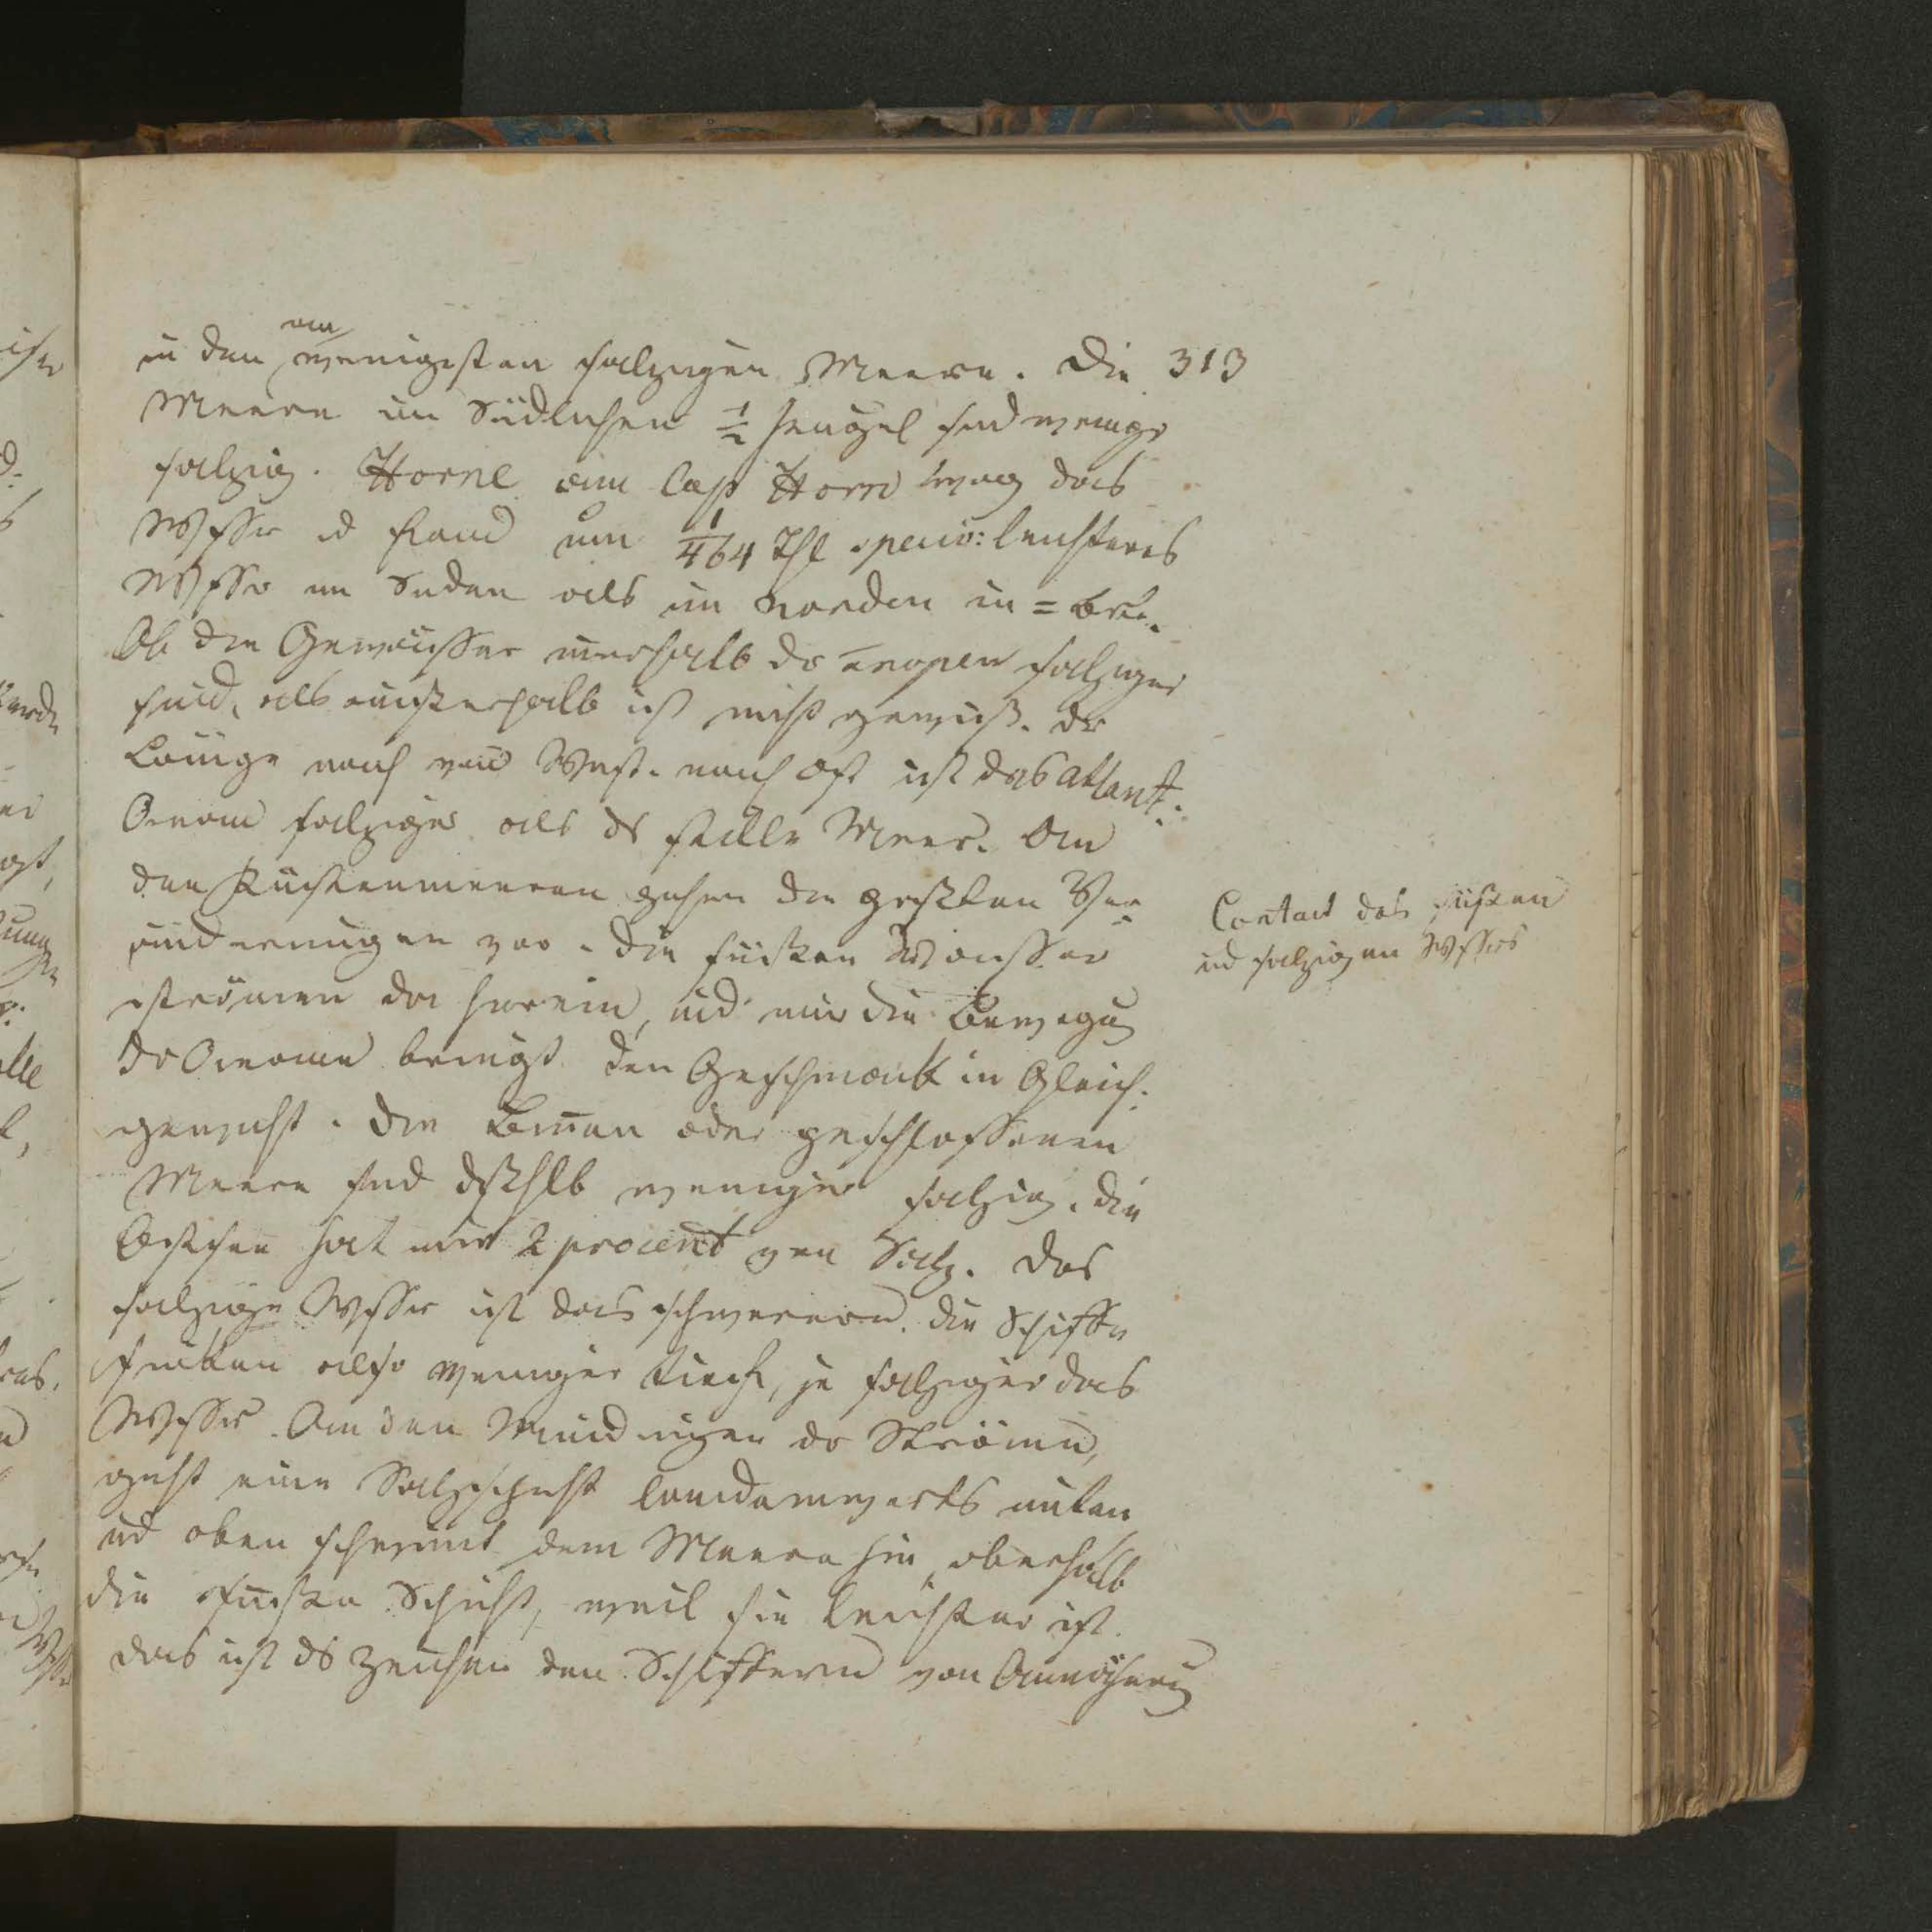 in den am wenigsten salzigen Meere. Die 313
Meere im Südlichen ½ Kugel sind wenige
salzig. Horne am Cap Horn wog das
Wsser ud fand um 1/464 Thl speciv: leichteres
Wsser im Süden als im Norden in = Bre..
Ob die Gewässer innerhalb dr Tropen salziger
sind, als außerhalb ist nicht gewiß. Dr
Länge nach von West. nach Ost ist das atlant:
Ocean salziger als ds stille Meer. An
den Küstenmeeren gehen die größten Ver-
änderungen vor. Die süßen Wasser
strömen da herein, ud nur die Bewegug
dr Oceane bringt den Geschmack in Gleich-
gewicht. Die Binnen oder geschlossenen
Meere sind dßhlb weniger salzig. Die
Ostsee hat nur 2 procent von Salz. Das
salzige Wsser ist das schwerere. Die Schiffe
sinken also weniger tief, je salziger das
Wsser. An den Mündungen dr Ströme,
geht eine Salzschicht landeinwerts unten
ud oben schwimt dem Meere hin, oberhalb
die süße Schicht, weil sie leichter ist.
das ist ds Zeichen den Schiffern von Annäherug
Contact des süßen
ud salzigen Wssers